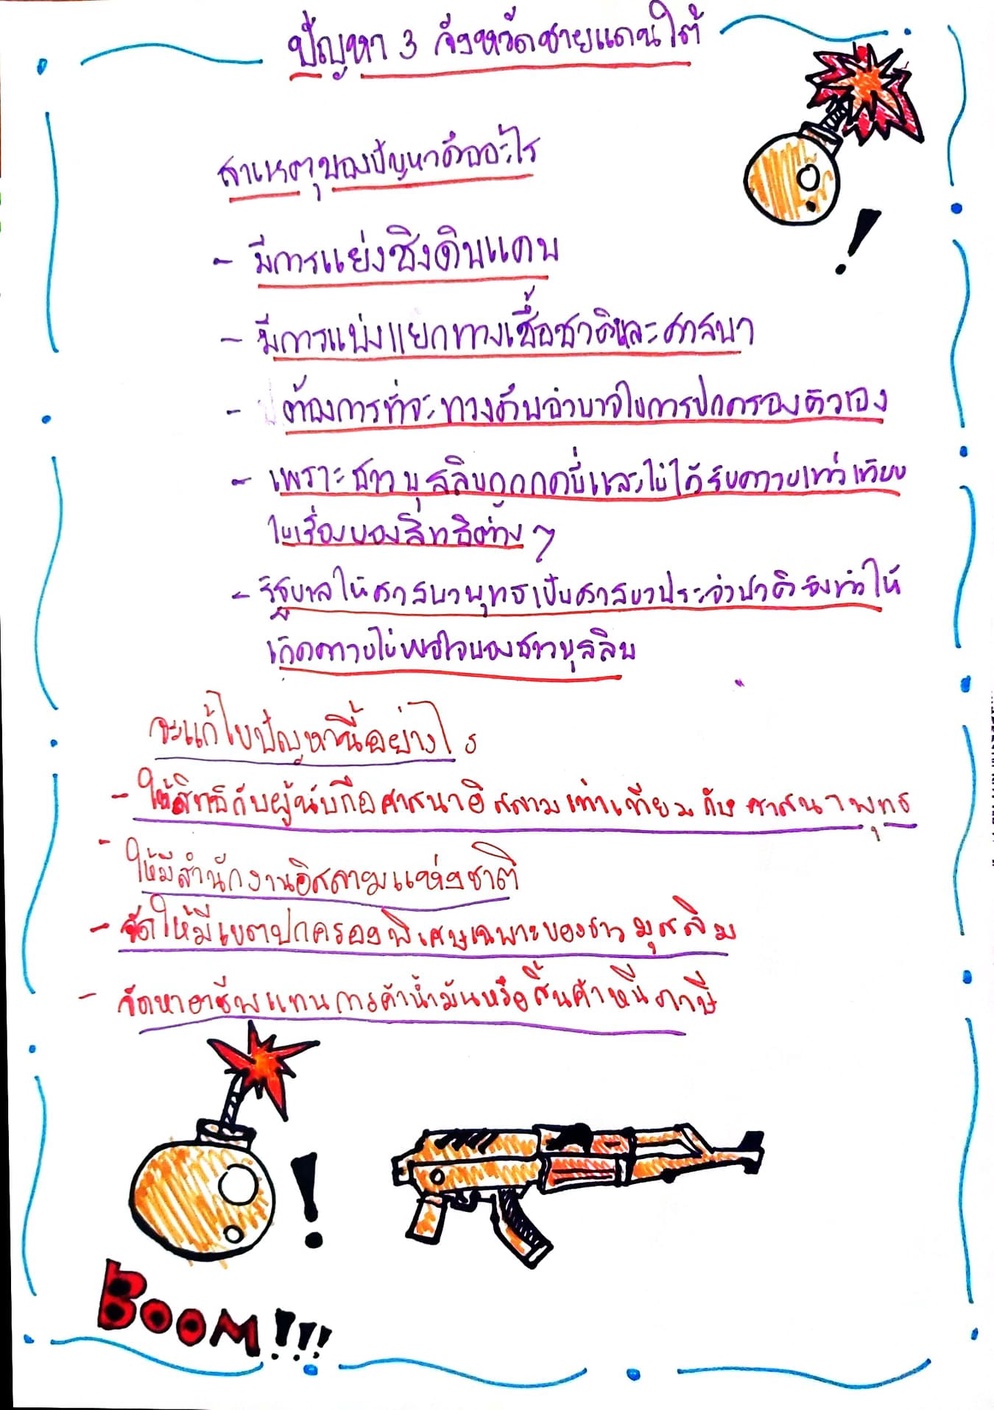 ปัญหา 3 จังหวัดชายแดนใต้
สาเหตุของปัญหาคืออะไร
- มีการแย่งชิงดินแดน
- มีการแบ่งแยกทางเชื้อชาติและศาสนา
- ต้องการที่จะทวงคืนอำนาจในการปกครองตัวเอง
- เพราะชาวมุสลิมถูกกดขี่และไม่ได้รับความเท่าเทียม
ในเรื่องของสิทธิต่างๆ
- รัฐบาลให้ศาสนาพุทธเป็นศาสนาประจำชาติจึงทำให้
เกิดความไม่พอใจของชาวมุสลิม
จะแก้ไขปัญหานี้อย่างไร
- ให้สิทธิกับผู้นับถือศาสนาอิสลามเท่าเทียมกับศาสนาพุทธ
- ให้มีสำนักงานอิสลามแห่งชาติ
- จัดให้มีเขตปกครองพิเศษเฉพาะของชาวมุสลิม
- จัดหาอาชีพแทนการค้าน้ำมันหรือสินค้าหนีภาษี
!
!
BOOM!!!